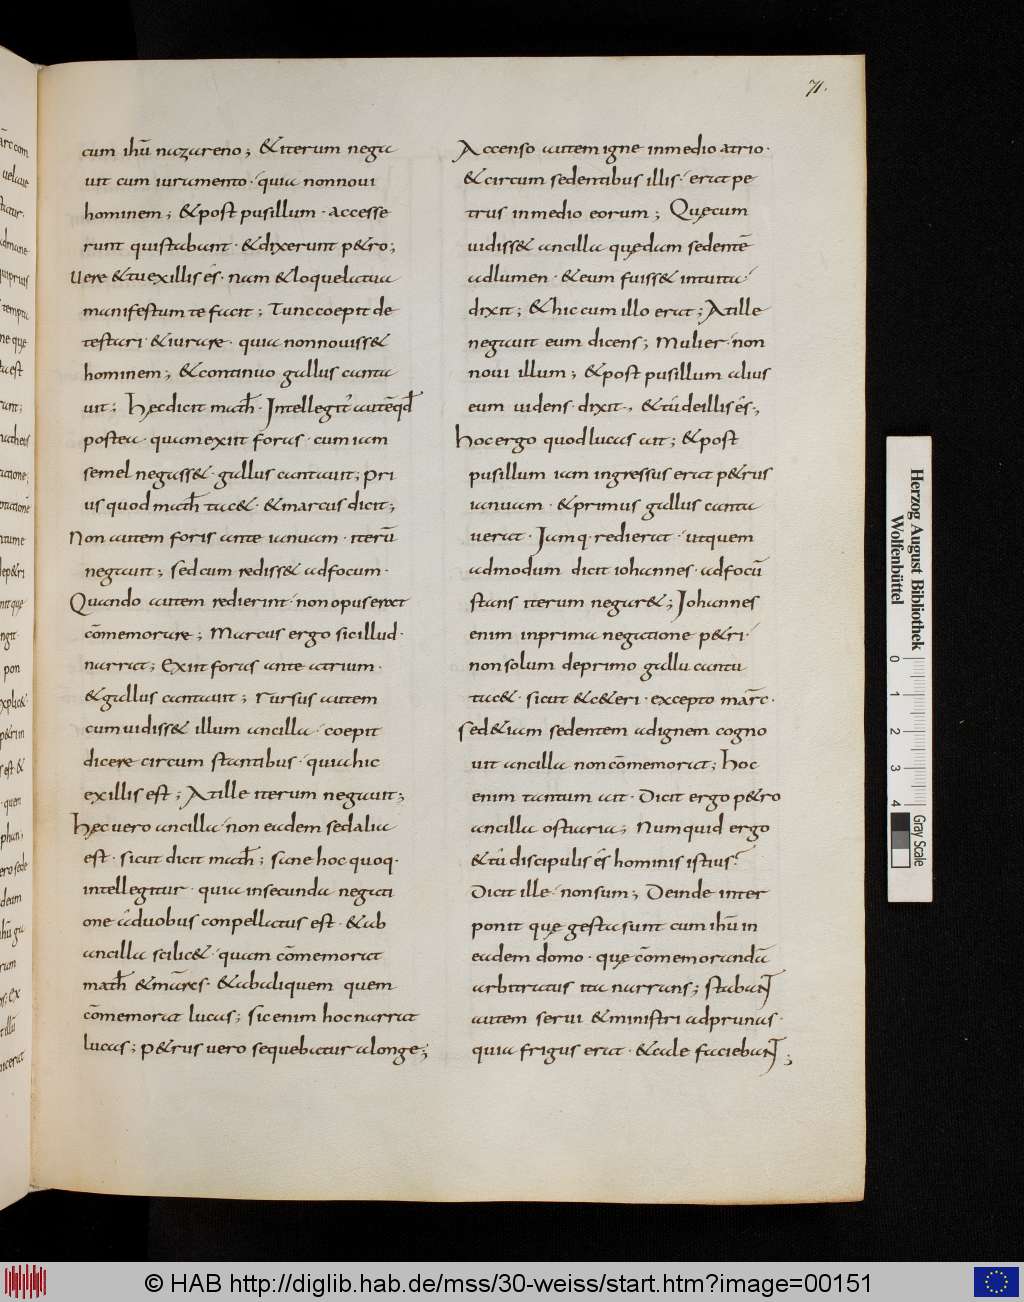 71.
cum ihū nazareno; & iterum nega
uit cum iuramento · quia non noui
hominem; & post pusillum · accesse
runt qui stabant · & dixerunt p&ro;
Uere & tu ex illis és · nam & loquela tua
manifestum te facit; Tunc coepit de
testari · & iurare · quia non nouiss&
hominem; & continuo gallus canta
uit; Hęc dicit math̄ · Intellegit' autē qd̄
postea · quam exiit foras · cum iam
semel negass& · gallus cantauit; pri
us quod math̄ tac& · & marcus dicit;
Non autem foris ante ianuam · iterū
negauit; sed cum rediss& ad focum ·
Quando autem redierint · non opus erat
cōmemorare; Marcus ergo sic illud ·
narrat; Exiit foras ante atrium ·
& gallus cantauit; rursus autem
cum uidiss& illum ancilla · coepit
dicere circum stantibus · quia hic
ex illis est; At ille iterum negauit;
Hęc uero ancilla · non eadem sed alia
est · sicut dicit math̄; sane hoc quoq·
intellegitur · quia in secunda negati
one a duobus conpellatus est · & ab
ancilla scilic& · quam cōmemorat
math̄ & mārcs · & ab aliquem quem
cōmemorat lucas; sic enim hoc narrat
lucas; p&rus uero sequebatur a longe;
Accenso autem igne in medio atrio ·
& circum sedentibus illis · erat pe
trus in medio eorum; Quę cum
uidiss& ancilla quędam sedentē
ad lumen · & eum fuiss& intuita ·
dixit; & hic cum illo erat; At ille
negauit eum dicens; Mulier · non
noui illum; & post pusillum alius
eum uidens · dixit, & tú de illis és,
Hoc ergo quod lucas ait; & post
pusillum iam ingressus erat p&rus
ianuam · & primus gallus canta
uerat · Jamq· redierat · ut quem
admodum dicit iohannes · ad focū
stans iterum negar&; Johannes
enim in prima negatione p&ri ·
non solum de primo galli cantu
tac& · sicut & c&eri · excepto mārc ·
sed &iam sedentem ad ignem cogno
uit ancilla non cōmemorat; Hoc
enim tantum ait · Dicit ergo p&ro
ancilla ostiaria; Numquid ergo
& tú discipulis és hominis istius?
Dicit ille · non sum; Deinde inter
ponit quę gesta sunt cum ihū in
eadem domo · quę cōmemorandā
arbitratus ita narrans; stabant
autem serui & ministri ad prunas ·
quia frigus erat · & cale faciebant;
Herzog August Bibliothek
Wolfenbüttel
0 1 2 3 4
Gray Scale
© HAB http://diglib.hab.de/mss/30-weiss/start.htm?image=00151